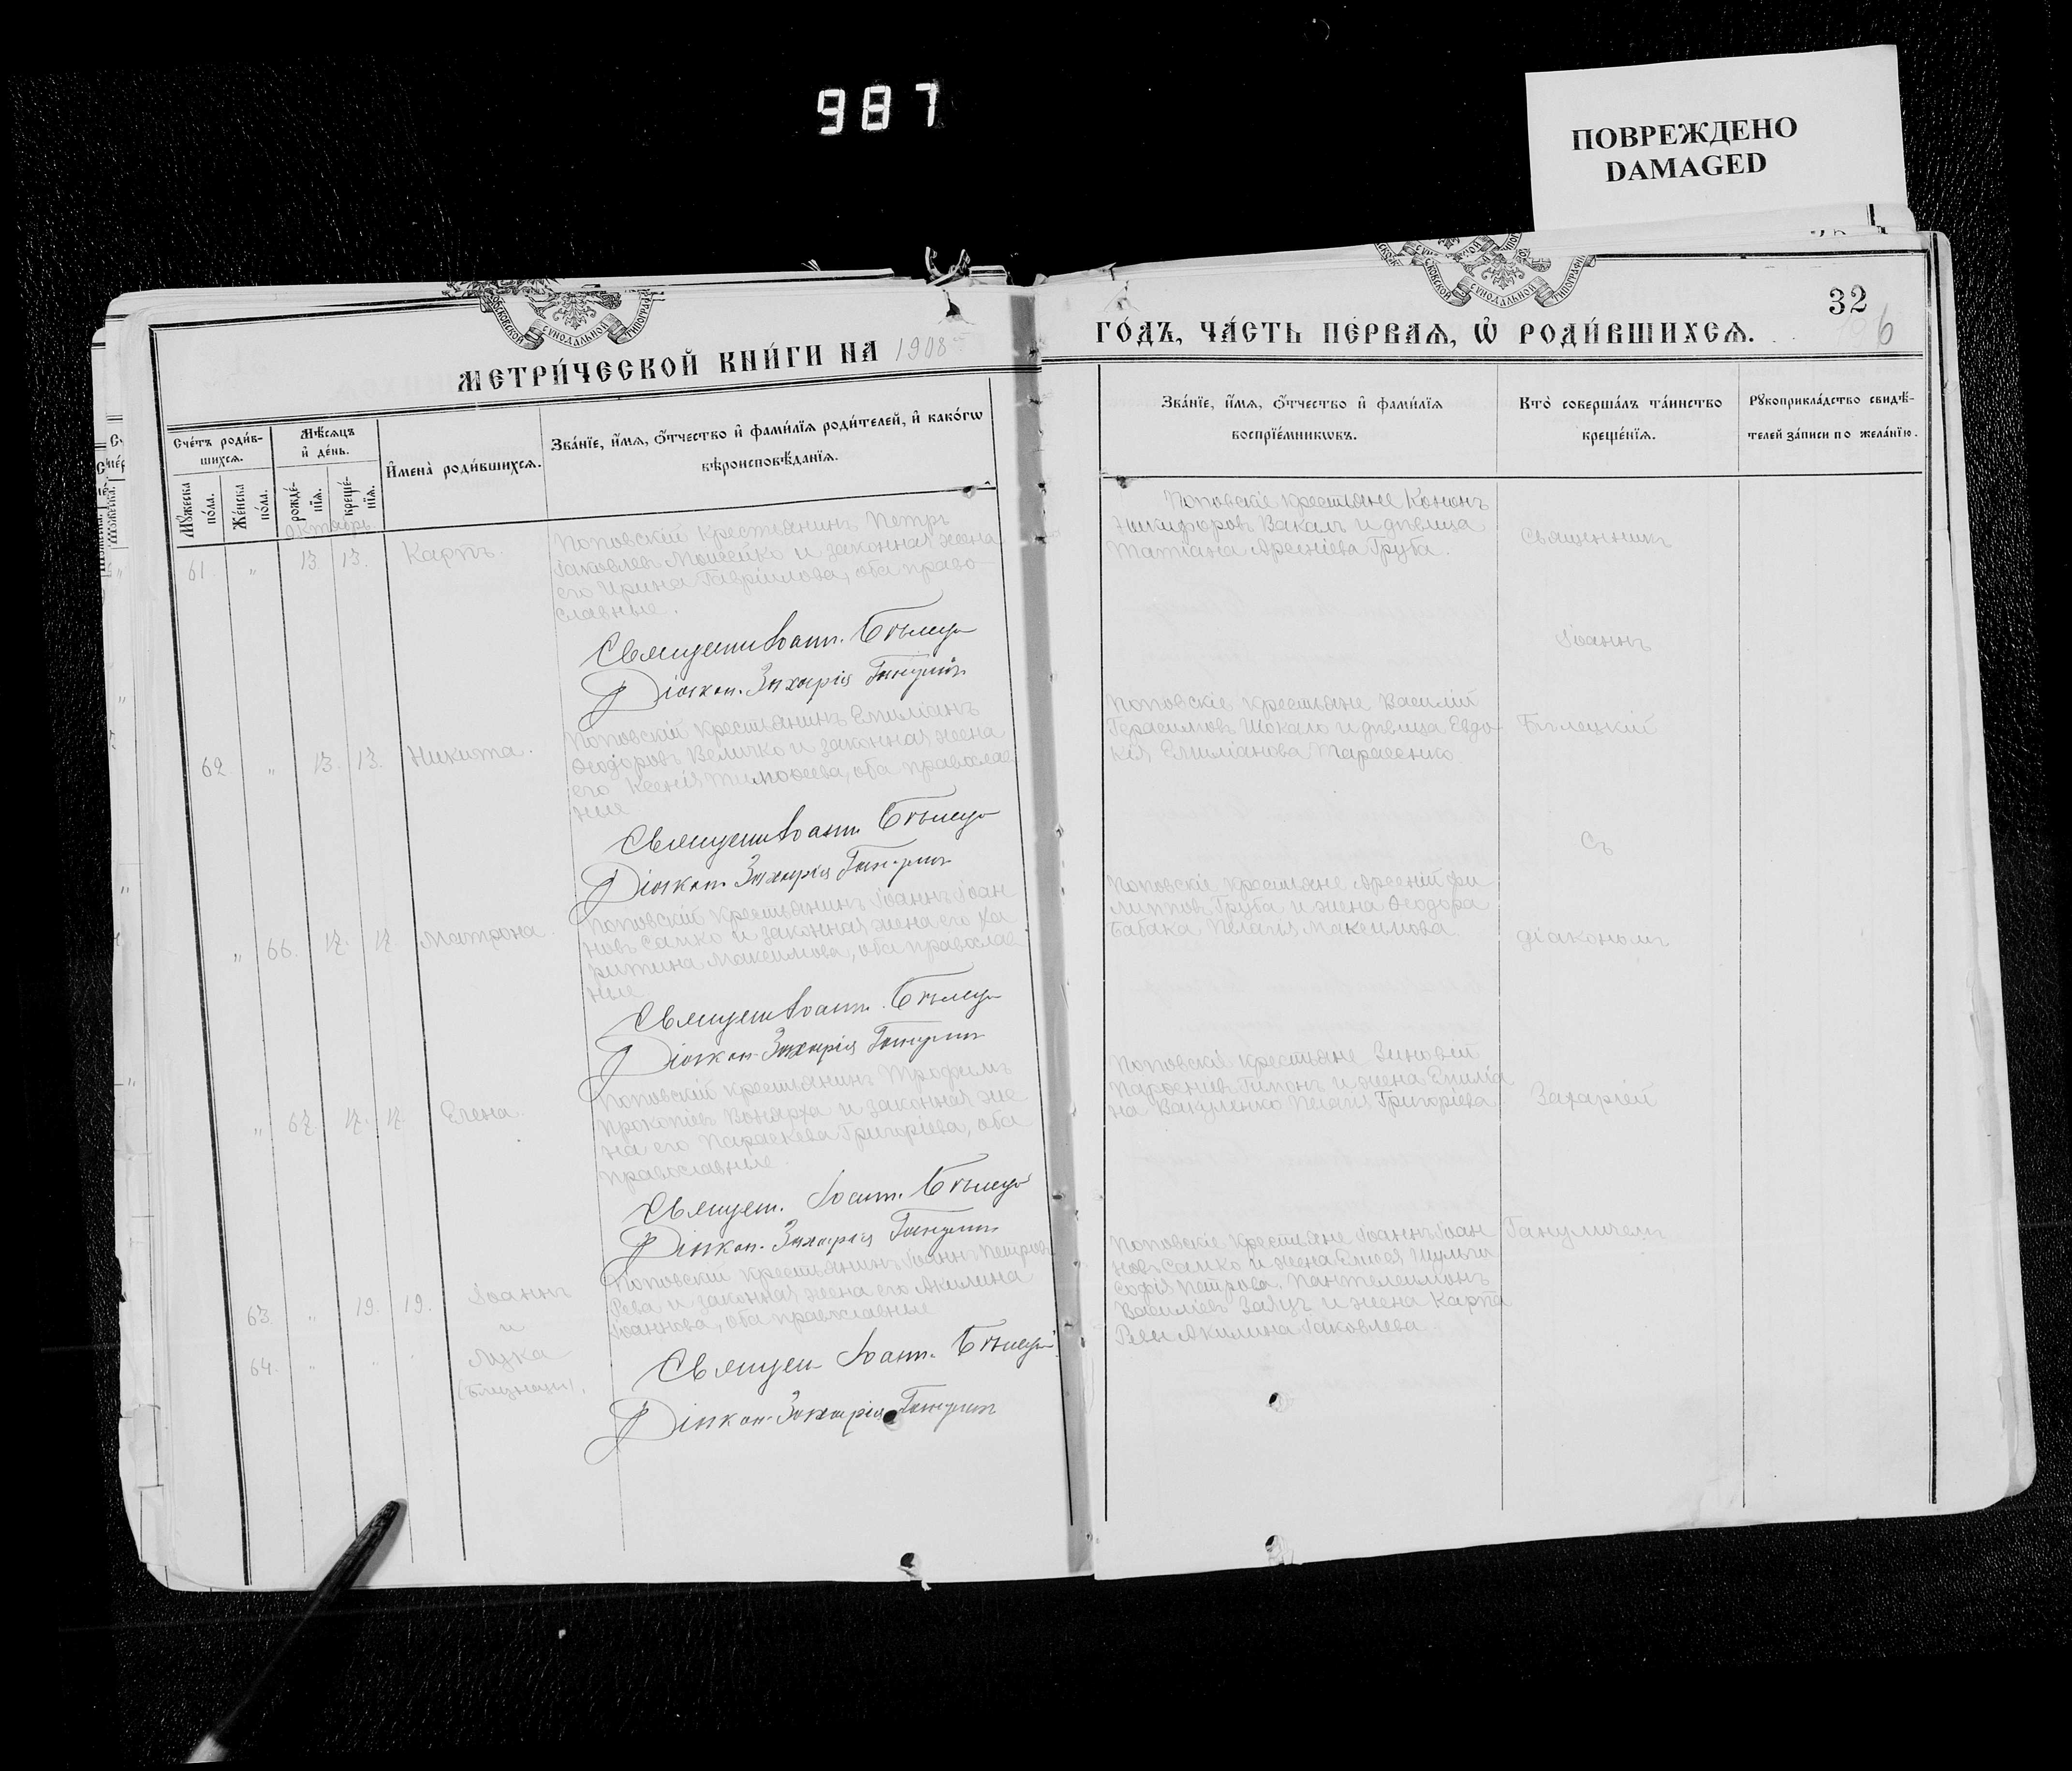 987
ПОВРЕЖДЕНО
DAMAGED
32
6
МЕТРИ́ЧЕСКОЙ КНИ́ГИ НА 1908
ГО́ДЪ, ЧА́СТЬ ПЕ́РВАѦ, Ѿ РОДИ́ВШИХСѦ.
Сче́тъ роди́в-
шихсѧ.
Мꙋ́жеска
по́ла.
Же́нска
по́ла.
Мѣ́сѧцъ
и҆ де́нь.
рожде́-
нїѧ.
креще́-
нїѧ.
И҆мена̀ роди́вшихсѧ.
Зва́нїе, и҆́мѧ, ѻ҆́тчество и҆ фамилїѧ роди́телей, и҆ како́гѡ
вѣроисповѣ́данїѧ.
Зва́нїе, и҆́мѧ, ѻ҆́тчество и҆ фами́лїѧ
воспрїе́мникѡвъ.
Кто̀ соверша́лъ та́инство
креще́нїѧ.
Рꙋкоприкла́дство свидѣ́-
телей за́писи по жела́нїю.
Октябрь
61. " 13 13. Карпъ.
Поповскій крестьянинъ Петръ
Іаковлевъ Мосейко и законная жена
его Ирина Гавріилова, оба право-
славные.
Священ. Іоан. Бѣлец
Діакон. Захарія Ганул
Поповскіе крестьяне Кононъ
Никифоровъ Вакалъ и дѣвица
Татіана Арсеніева Груба.
Священникъ
Іоаннъ
62 " 13. 13. Никита.
Поповскій крестьянинъ Емиліанъ
Ѳеодоровъ Величко и законная жена
его Ксенія Тимоѳеева, оба православ
ные
Священ. Іоан. Бѣлец
Діакон. Захарія Ганул
Поповскіе крестьяне Василій
Герасимовъ Шокало и дѣвица Евдо-
кія Емиліанова Тарасенко
Бѣлецкій
Съ
" 66. 17. 17. Матрона.
Поповскій крестьянинъ Іоаннъ Іоан
новъ Самко и законная жена его Ха
ритина Максимова, оба православ
ные
Священ. Іоан. Бѣлец
Діакон. Захарія Ганул
Поповскіе крестьяне Арсеній Фи
липповъ Груба и жена Ѳеодора
Бабака Пелагія Максимова.
діакономъ
" 67. 17. 17. Елена.
Поповскій крестьянинъ Трофимъ
Прокопіевъ и законная же
на его Параскева Григоріева, оба
православные.
Священ. Іоан. Бѣлец
Діакон. Захарія Ганул
Поповскіе крестьяне Зиновій
Парѳеніевъ и жена Емилiа
на Вакуленко Пелагія Григоріева
Захаріей
63 " 19. 19. Іоаннъ
и
64. " " " Лука
(близнецы).
Поповскій крестьянинъ Іоаннъ Петровъ
Рева и законная жена его Акилина
Іоаннова, оба православные
Священ. Іоан. Бѣлец
Діакон. Захарія Ганул
Поповскіе крестьяне Іоаннъ Іоан
новъ Самко и жена Елисея Шульги
Софія Петрова. Пантелеимонъ
Василіевъ Заяцъ и жена Карпа
Ревы Акилина Іаковлева.
Гануличемъ